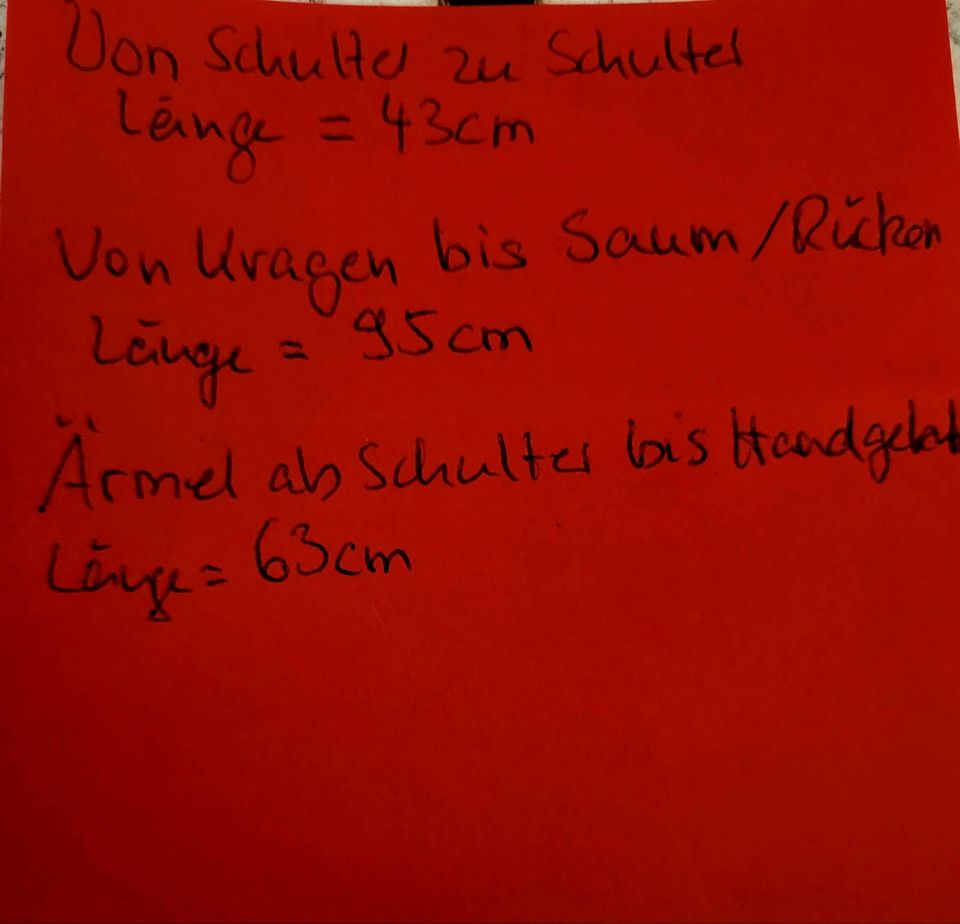 Von Schulter zu Schulter
Länge = 43cm
Von Kragen bis Saum/Rücken
Länge = 95cm
Ärmel ab Schulter bis
Länge = 63cm